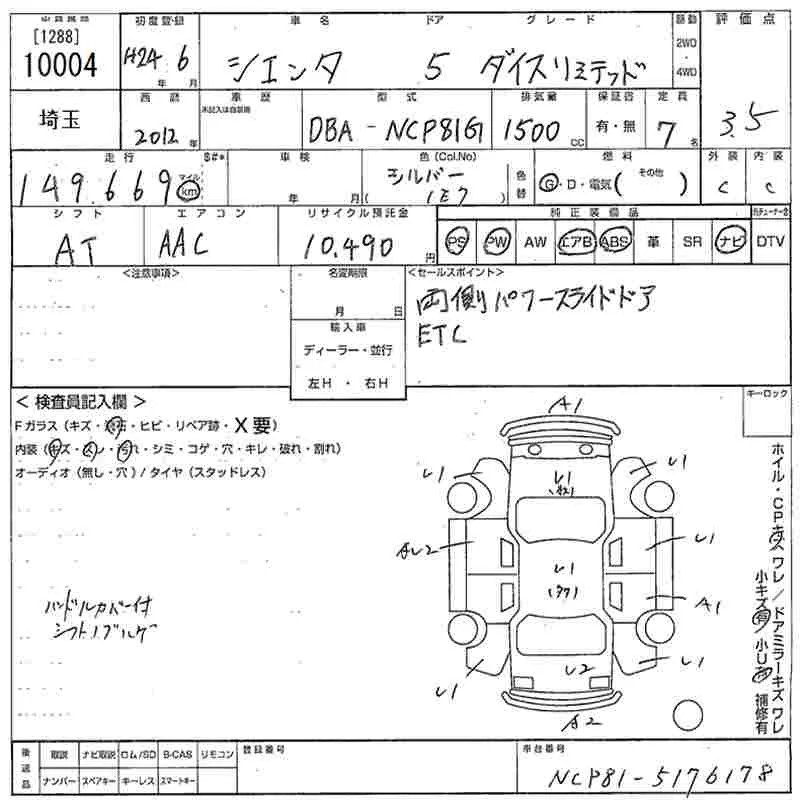 [1288]
10004
初度登録
H24 年 6 月
車名
シエンタ
ドア
5
グレード
ダイスリミテッド
駆動
2WD
・
4WD
評価点
3.5
埼玉
西暦
2012 年
車歴
未記入は自家用
型式
DBA - NCP81G
排気量
1500 CC
保証書
有・無
定員
7 名
走行
149,669
マイル
km
S#*
車検
年 月
色 (Col.No)
シルバー
( 1E7 )
色替
燃料
G・D・電気 ( その他 )
外装
C
内装
C
シフト
AT
エアコン
AAC
リサイクル預託金
10,490 円
純正装備品
PS PW AW エアB ABS 革 SR ナビ DTV
<注意事項>
名変期限
月 日
輸入車
ディーラー・並行
左H ・ 右H
<セールスポイント>
両側パワースライドドア
ETC
< 検査員記入欄 >
Fガラス (キズ・飛石・ヒビ・リペア跡・X要)
内装 (キズ・スレ・汚れ・シミ・コゲ・穴・キレ・破れ・割れ)
オーディオ (無し・穴) / タイヤ (スタッドレス)
キーロック
A1
U1
U1
U1
AU2
U1
U1
A1
U2
U1
U1
A2
ハンドルカバー付
シフトノブハゲ
ホイル・CPキズ ワレ / ドアミラーキズ ワレ
小キズ有 小U有 補修有
後送品
取説 ナビ取説 ロム/SD B-CAS リモコン
ナンバー スペアキー キーレス スマートキー
登録番号
車台番号
NCP81-5176178